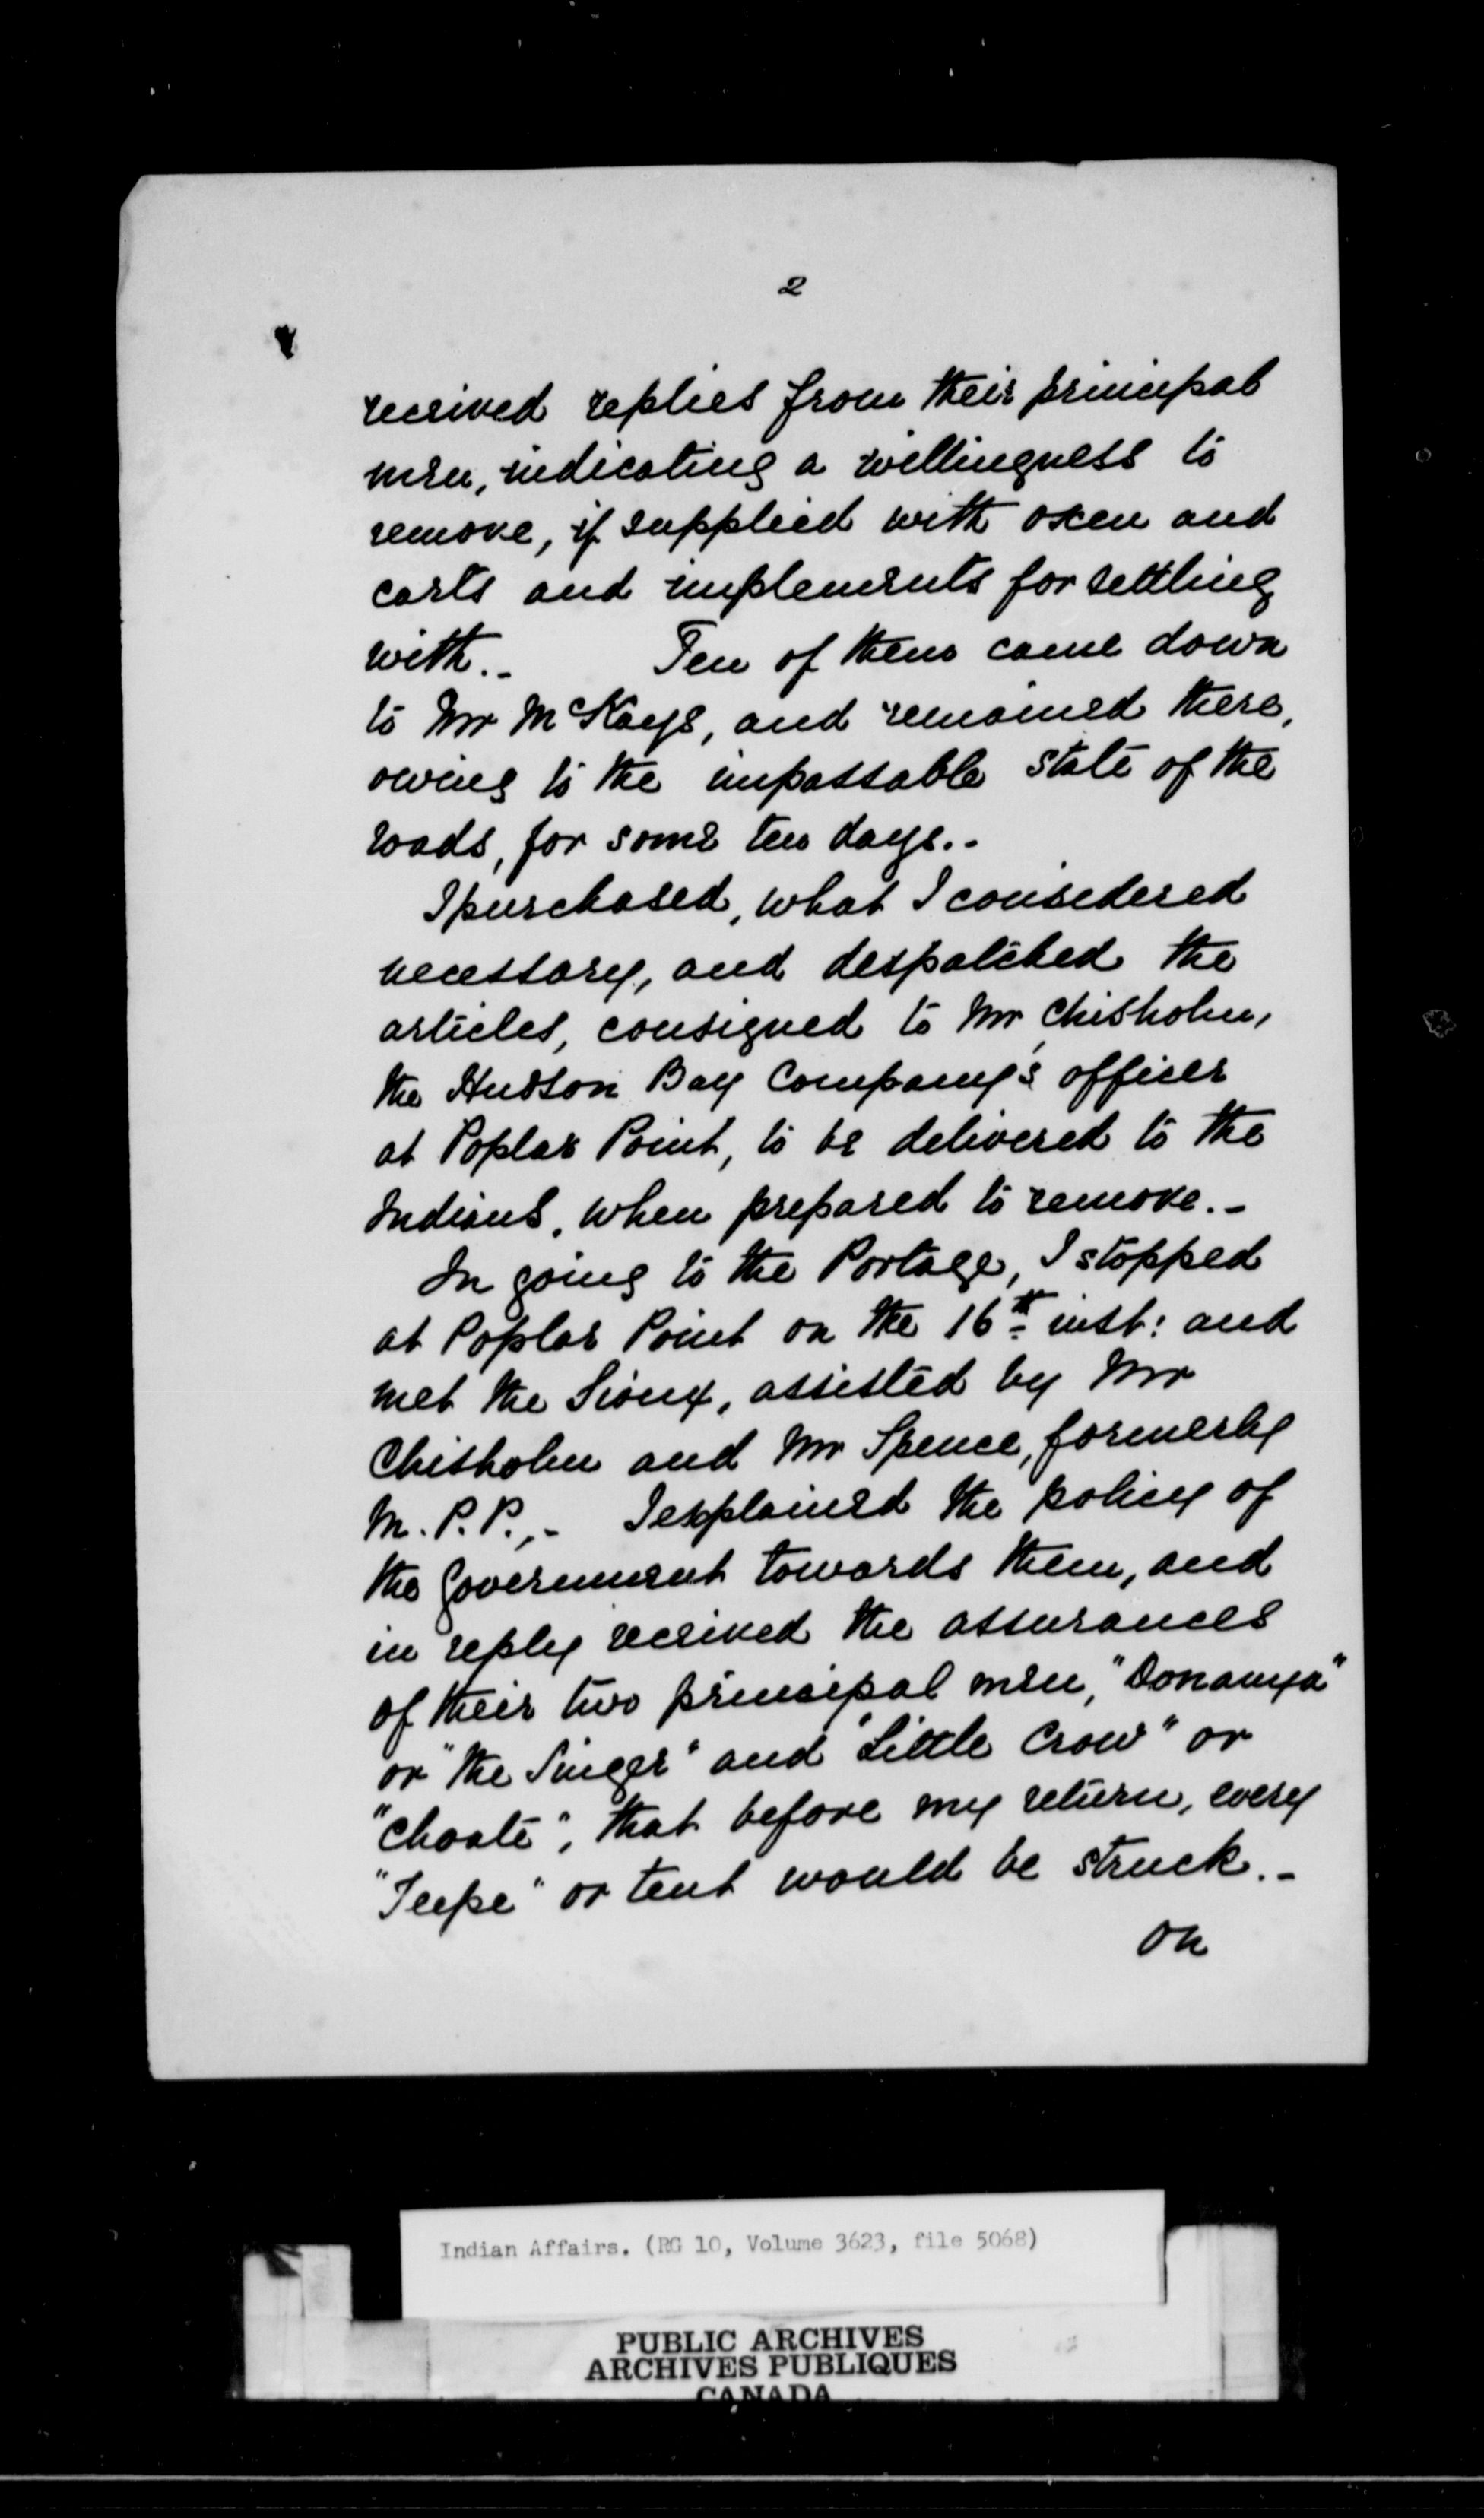 2
received replies from their principal
men, indicating a willingness to
remove, if supplied with oxen and
carts and implements for settling
with.- Ten of them came down
to Mr McKays, and remained there,
owing to the impassable state of the
roads, for some ten days.-
I purchased, what I considered
necessary, and despatched the
articles, consigned to Mr Chisholm,
the Hudson Bay Company's officer
at Poplar Point, to be delivered to the
Indians, when prepared to remove.-
In going to the Portage, I stopped
at Poplar Point on the 16th inst: and
met the Sioux, assisted by Mr
Chisholm and Mr Spence, formerly
M.P.P.,- I explained the policy of
the Government towards them, and
in reply received the assurances
of their two principal men, "Donamya"
or "the Singer" and "Little Crow" or
"Choate", that before my return, every
"Teepe" or tent would be struck.-
On
Indian Affairs. (RG 10, Volume 3623, file 5068)
PUBLIC ARCHIVES
ARCHIVES PUBLIQUES
CANADA